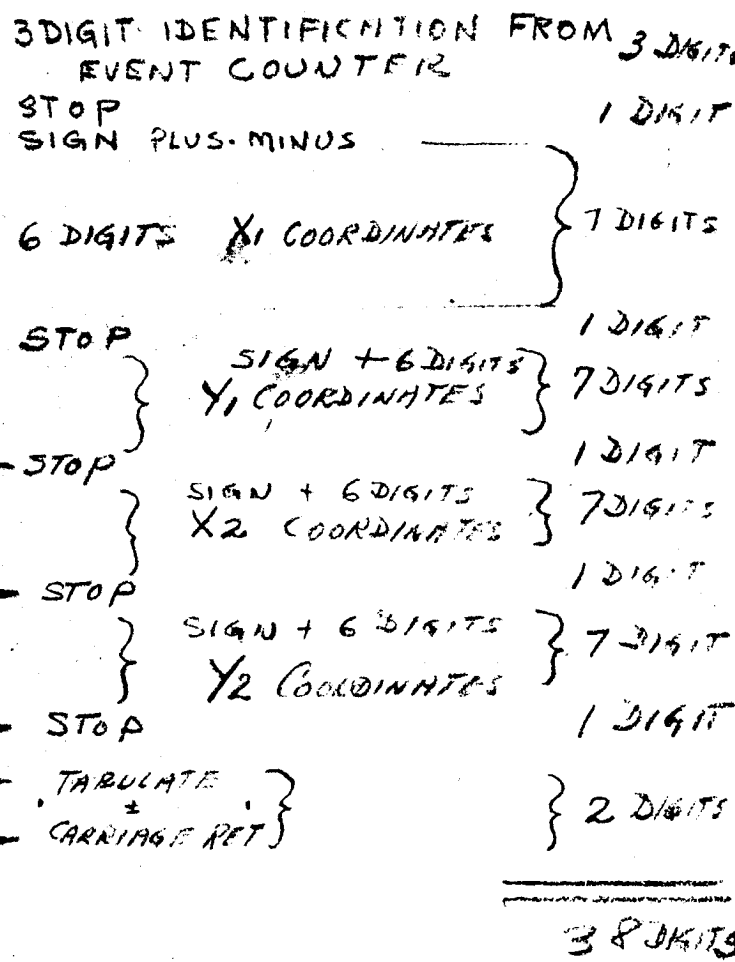 3 DIGIT IDENTIFICATION FROM 3 DIGITS
EVENT COUNTER
STOP 1 DIGIT
SIGN PLUS-MINUS
6 DIGITS X1 COORDINATES } 7 DIGITS
STOP 1 DIGIT
SIGN + 6 DIGITS
Y1 COORDINATES } 7 DIGITS
- STOP 1 DIGIT
SIGN + 6 DIGITS
X2 COORDINATES } 7 DIGITS
- STOP 1 DIGIT
SIGN + 6 DIGITS } 7 DIGIT
Y2 COORDINATES
- STOP 1 DIGIT
- TABULATE
± } 2 DIGITS
- CARRIAGE RET
38 DIGITS